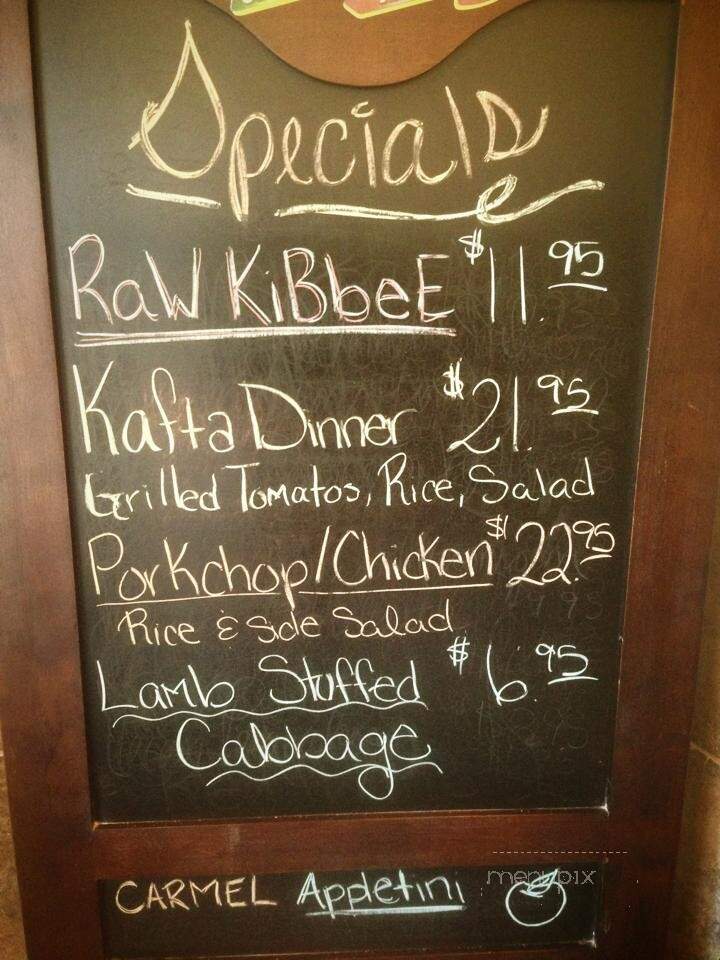 Specials
Raw KiBbeE $11.95
Kafta Dinner $21.95
Grilled Tomatos, Rice, Salad
Porkchop/Chicken $22.95
Rice & Side Salad
Lamb Stuffed $6.95
Cabbage
CARMEL Appletini
menupix